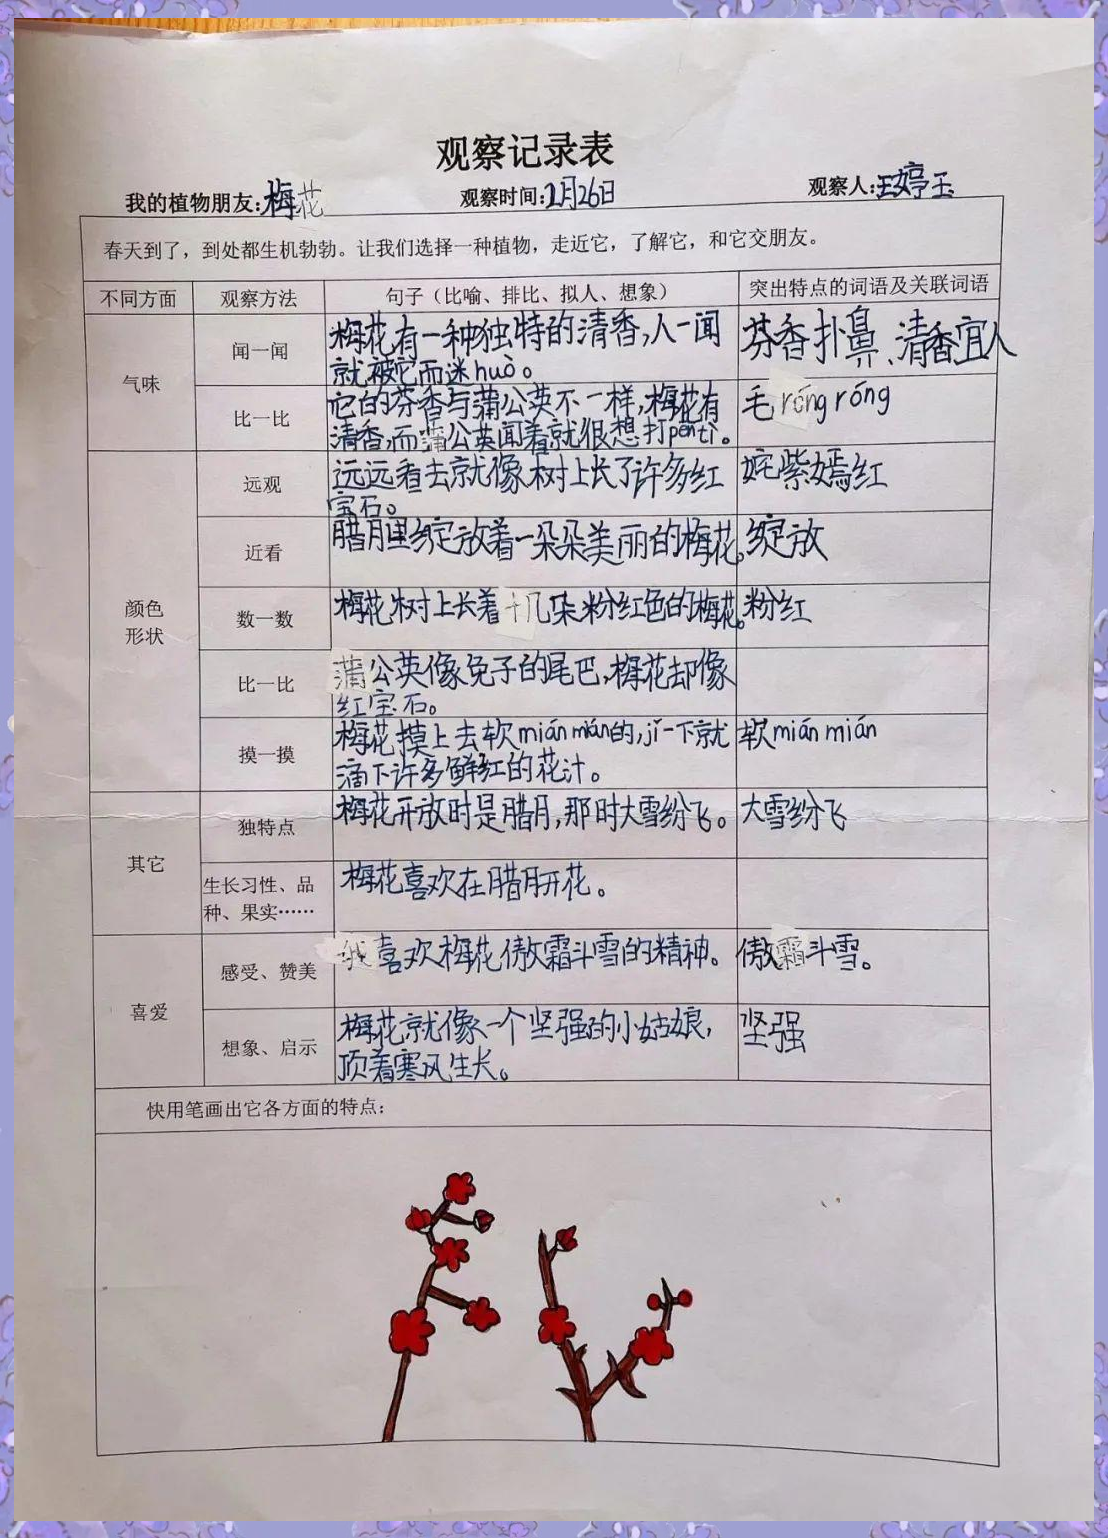 观察记录表
我的植物朋友:梅花 观察时间:2月26日 观察人:王婷玉
春天到了，到处都生机勃勃。让我们选择一种植物，走近它，了解它，和它交朋友。
不同方面 观察方法 句子（比喻、排比、拟人、想象） 突出特点的词语及关联词语
气味
闻一闻
梅花有一种独特的清香,人一闻
就被它而迷huò。
芬香扑鼻、清香宜人
比一比
它的芬香与蒲公英不一样,梅花有
清香,而蒲公英闻着就很想打pēntì。
毛róngróng
颜色
形状
远观
远远看去就像树上长了许多红
宝石。
姹紫嫣红
近看
腊月里绽放着一朵朵美丽的梅花。
绽放
数一数
梅花树上长着十几朵粉红色的梅花。
粉红
比一比
蒲公英像兔子的尾巴,梅花却像
红宝石。
摸一摸
梅花摸上去软miánmián的,jǐ一下就
滴下许多鲜红的花汁。
软miánmián
其它
独特点
梅花开放时是腊月,那时大雪纷飞。
大雪纷飞
生长习性、品
种、果实……
梅花喜欢在腊月开花。
喜爱
感受、赞美
我喜欢梅花傲霜斗雪的精神。
傲霜斗雪。
想象、启示
梅花就像一个坚强的小姑娘,
顶着寒风生长。
坚强
快用笔画出它各方面的特点：